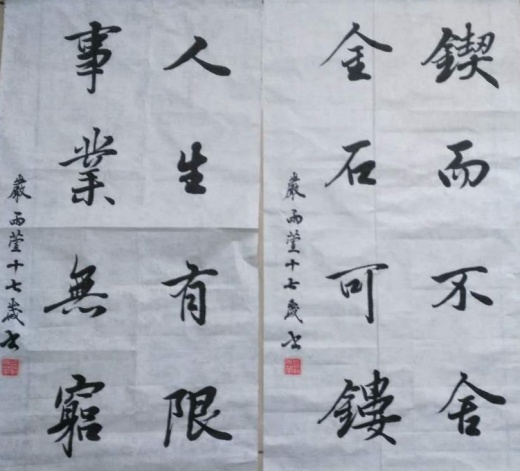 鍥而不舍
金石可鏤
嚴雨瑩十七歲書
人生有限
事業無窮
嚴雨瑩十七歲書